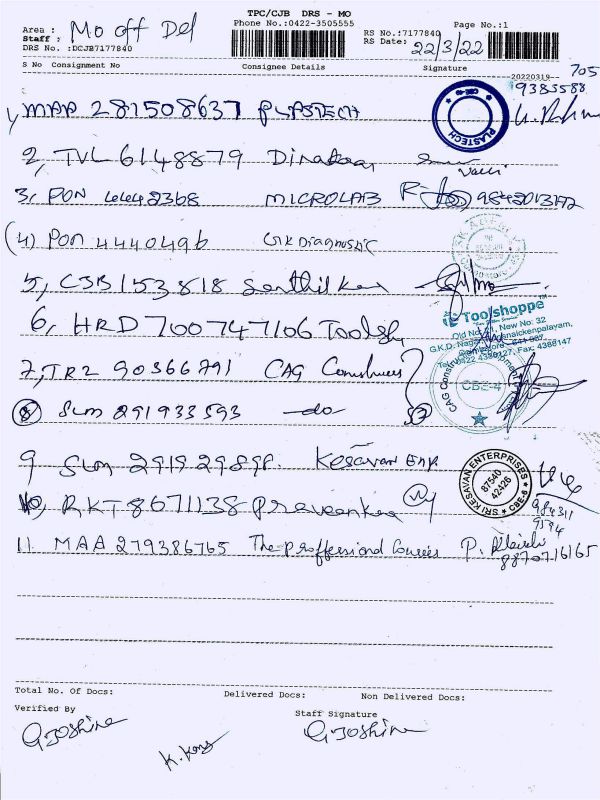 TPC/CJB DRS - MO
Area : Mo off Del
Phone No.:0422-3505555
Page No.:1
Staff :
RS No.:7177840
DRS No. :DCJB7177840
RS Date: 22/3/22
S No Consignment No Consignee Details Signature
20220319
705
9385588
1, MAA 281508637 PLASTECH
PLASTECH
CBE-
2, TVL 6148879 Dinakaar
3, PON 4442368 MICROLAB 9842013172
(4) PON 4440496 GK Diagnostic
5, CJB 153818 Senthil
Toolshoppe
Old No. 21, New No. 32
G.K.D. Nagar,
Coimbatore - 641 037
Tel: 0422 4388127, Fax: 4388147
6, HRD 700747106 Toolsh
7, TRZ 90366791 CAG
CAG Construction
CBE-4
(8) SLM 291933593 -do-
9 SLM 291929898 Kesavan Enp
SRI KESAVAN ENTERPRISES
87540
42426
CBE-6
10, RKT 8671138 Praveen
984311
9594
11. MAA 279386765 The proffessional Couries P.
8870716165
Total No. Of Docs: Delivered Docs: Non Delivered Docs:
Verified By Staff Signature
G Joshine G Joshine